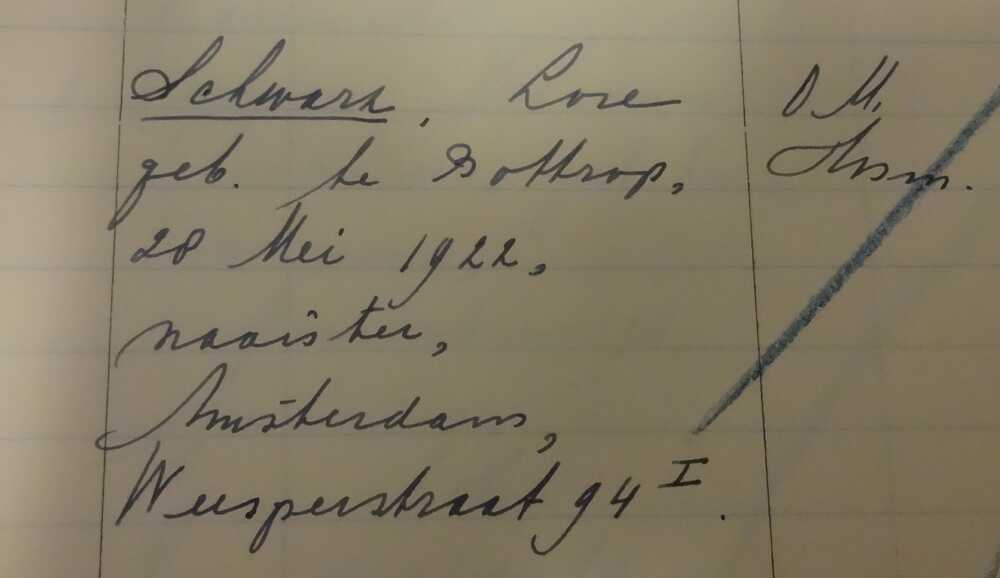 Schwarz, Lore
geb. te Bottrop,
28 Mei 1922,
naaister,
Amsterdam,
Weesperstraat 94 I.
O M.
Amsm.